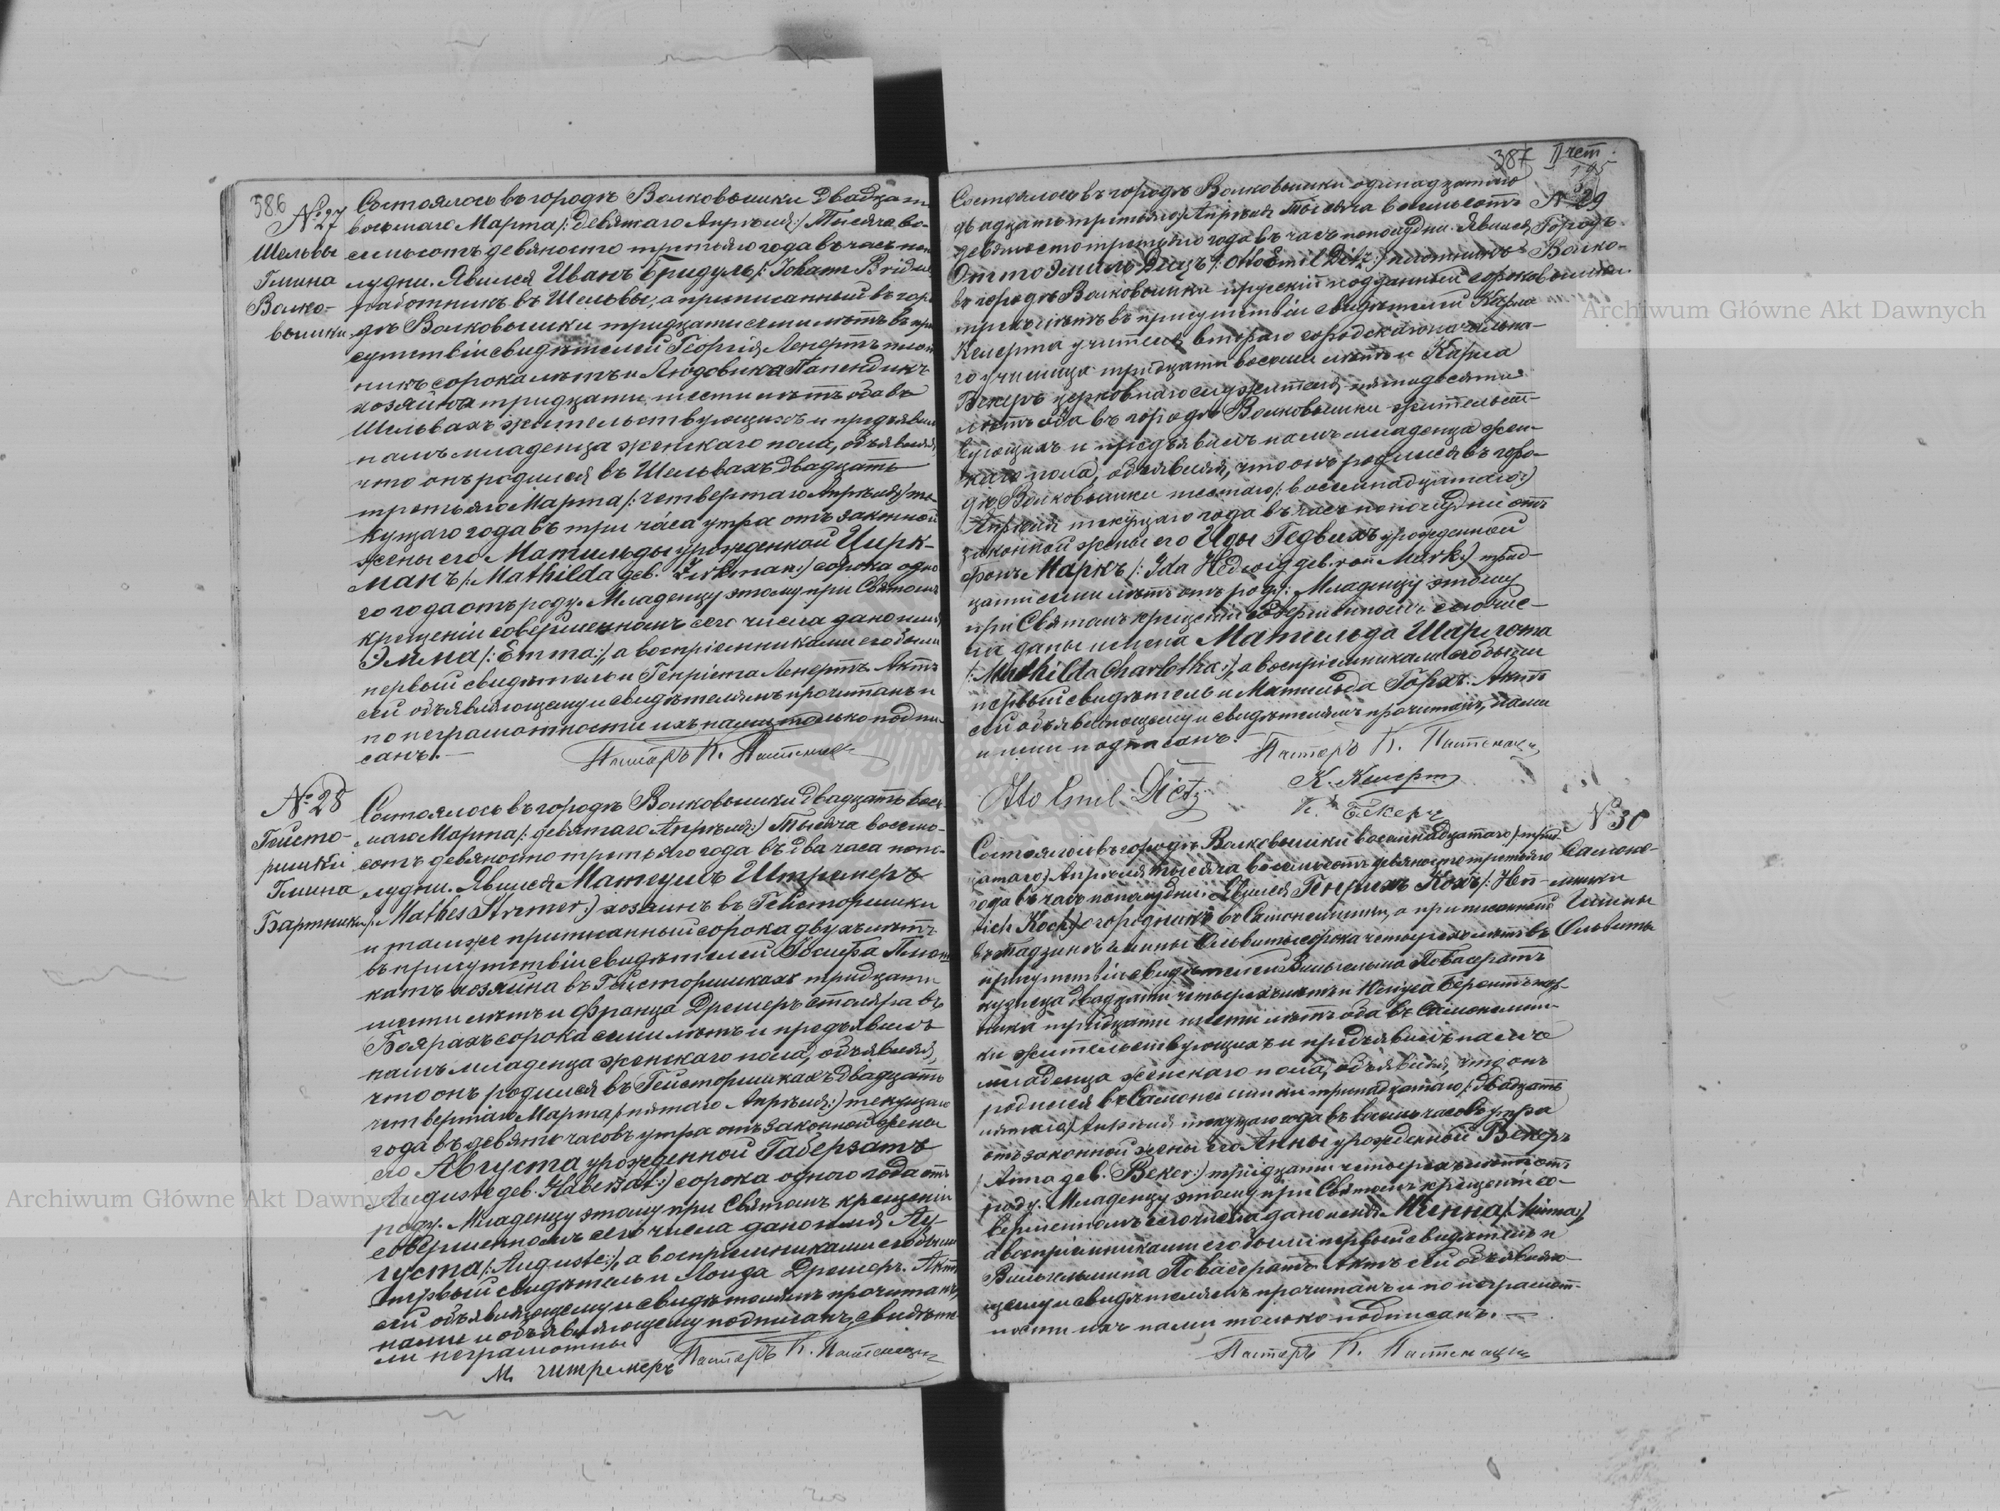 586
№ 27
Шельвы
Гмина
Волко-
вышки
Состоялось въ городѣ Волковышки двадцать
восьмаго Марта /: девятаго Апрѣля :/ тысяча во-
семьсотъ девяносто третьяго года въ часъ попо-
лудни. Явился Иванъ Бридуль /: Johann Bridul
работникъ въ Шельвы, а приписанный въ горо-
дѣ Волковышки тридцати семи лѣтъ въ при-
сутствіи свидѣтелей Георгія Ленертъ плот-
никъ сорока лѣтъ и Людовика Папендикъ
хозяина тридцати шести лѣтъ оба въ
Шельвахъ жительствующихъ и предъявилъ
намъ младенца женскаго пола, объявляя,
что онъ родился въ Шельвахъ двадцать
третьяго Марта /: четвертаго Апрѣля :/ те-
кущаго года въ три часа утра отъ законной
жены его Матильды урожденной Цирк-
манъ /: Mathilda geb. Zirkman :/ сорока одно-
го года отъ роду. Младенцу этому при Святомъ
крещеніи совершенномъ сего числа дано имя
Эмма /: Emma :/, а воспріемниками его были
первый свидѣтель и Генріета Ленертъ. Актъ
сей объявляющему и свидѣтелямъ прочитанъ и
по неграмотности ихъ нами только подпи-
санъ. —
Пасторъ К.
№ 28
Гейсто-
ришки
Гмина
Бартники
Состоялось въ городѣ Волковышки двадцать вось-
маго Марта /: девятаго Апрѣля :/ Тысяча восемь-
сотъ девяносто третьяго года въ два часа попо-
лудни. Явился Матеушъ Штремеръ
/: Mathes Stremer :/ хозяинъ въ Гейсторишки
и тамже приписанный сорока двухъ лѣтъ
въ присутствіи свидѣтелей Іосифа
хозяина въ Гейсторишкахъ тридцати
шести лѣтъ и Франца Дремеръ столяра въ
Боярахъ сорока семи лѣтъ и предъявилъ
намъ младенца женскаго пола, объявляя,
что онъ родился въ Гейсторишкахъ двадцать
четвертаго Марта /: пятаго Апрѣля :/ текущаго
года въ девять часовъ утра отъ законной жены
его Августа урожденной Габерзатъ
Auguste geb. Habersat :/ сорока одного года отъ
роду. Младенцу этому при Святомъ крещеніи
совершенномъ сего числа дано имя Ав-
густа /: Auguste :/, а воспріемниками его были
первый свидѣтель и Луида Дремеръ. Актъ
сей объявляющему и свидѣтелямъ прочитанъ,
нами и объявляющему подписанъ, свидѣте-
ли неграмотны
М. Штремеръ Пасторъ К.
387 II чет.
№ 29
Городъ
Волко-
вышки
Состоялось въ городѣ Волковышки одинадцатаго
двадцать третьяго/ Апрѣля тысяча восемьсотъ
девяносто третьяго года въ часъ пополудни. Явился
Отто Эмиль Дицъ /: Otto Emil Ditz :/ плотникъ
въ городѣ Волковышки прусскій подданный сорока
трехъ лѣтъ въ присутствіи свидѣтелей Карла
Келерта учителя втораго городскаго начальна-
го училища тридцати восьми лѣтъ и Карла
Бекеръ церковнаго служителя пятидесяти
лѣтъ оба въ городѣ Волковышки жительст-
вующихъ и предъявилъ намъ младенца жен-
скаго пола, объявляя, что онъ родился въ горо-
дѣ Волковышки шестаго /: восемнадцатаго :/
Апрѣля текущаго года въ часъ пополудни отъ
законной жены его Иды Гедвихъ урожденной
фонъ Маркъ /: Ida Hedwig geb. von Mark :/ трид-
цати семи лѣтъ отъ роду. Младенцу этому
при Святомъ крещеніи совершенномъ сего чис-
ла даны имена Матильда Шарлота
/: Mathilda Charlotha :/, а воспріемниками его были
первый свидѣтель и Матильда Горхъ. Актъ
сей объявляющему и свидѣтелямъ прочитанъ, нами
и ими подписанъ.
Пасторъ К.
Otto Emil Dietz
К. Келерт
К. Бекеръ
№ 30
Гмины
Ольвиты
Состоялось въ городѣ Волковышки восемнадцатаго / трид-
цатаго/ Апрѣля тысяча восемьсотъ девяносто третьяго
года въ часъ пополудни. Явился Генрихъ Кохъ /: Hen-
rich Koch :/ огородникъ въ а приписанный
гмины Ольвиты сорока четырехъ лѣтъ въ
присутствіи свидѣтелей Вильгельма Повасератъ
кузнеца двадцати четырехъ лѣтъ и
тридцати шести лѣтъ оба въ
ки жительствующихъ и предъявилъ намъ
младенца женскаго пола, объявляя, что онъ
родился въ тринадцатаго /: двадцать
пятаго/ Апрѣля текущаго года въ восемь часовъ утра
отъ законной жены его Анны урожденной Векеръ
/ Anna geb. Veker :/ тридцати четырехъ лѣтъ отъ
роду. Младенцу этому при Святомъ крещеніи со-
вершенномъ сего числа дано имя Минна /: Minna :/,
а воспріемниками его были первый свидѣтель и
Вильгельмина Повасератъ. Актъ сей объявляю-
щему и свидѣтелямъ прочитанъ и по неграмот-
ности ихъ нами только подписанъ. —
Пасторъ К.
Archiwum Główne Akt Dawnych
Archiwum Główne Akt Dawnych